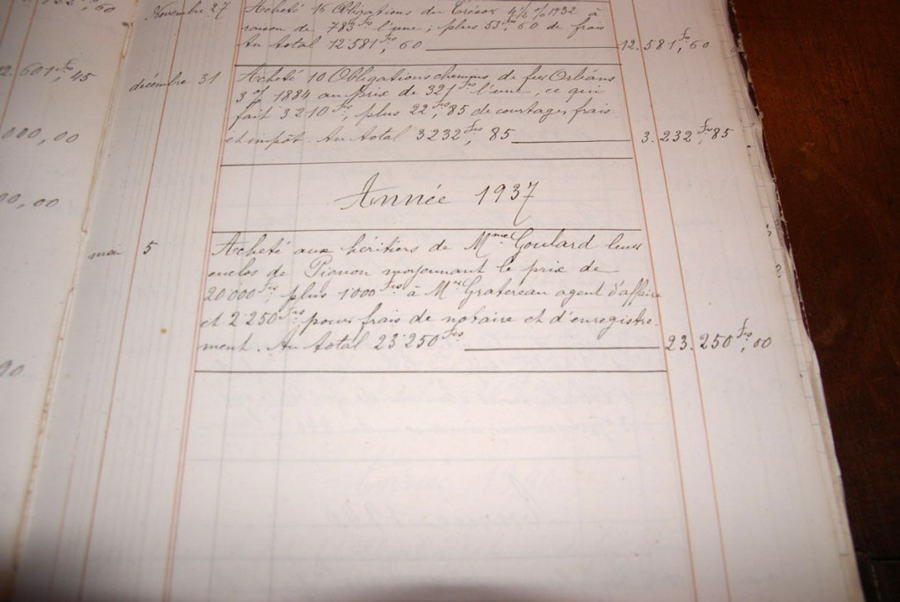 Novembre 27 Acheté 16 Obligations du Trésor 4½ % 1932 à
raison de 783 frs l'une, plus 53 frs, 60 de frais
Au total 12'581 frs, 60 12.581 frs, 60
décembre 31 Acheté 10 Obligations chemins de fer Orléans
3 % 1884 au prix de 321 frs l'une, ce qui
fait 3210 frs, plus 22 frs, 85 de courtages frais
et impôt. Au total 3232 frs, 85 3.232 frs, 85
Année 1937
mai 5 Acheté aux héritiers de Mme Goulard leur
enclos de Pionon moyennant le prix de
20'000 frs, plus 1'000 frs à Mr Gratereau agent d'affaire
et 2'250 frs pour frais de notaire et d'enregistre-
ment. Au total 23'250 frs 23.250 frs, 00
2.601 frs, 45
000,00
00,00
90